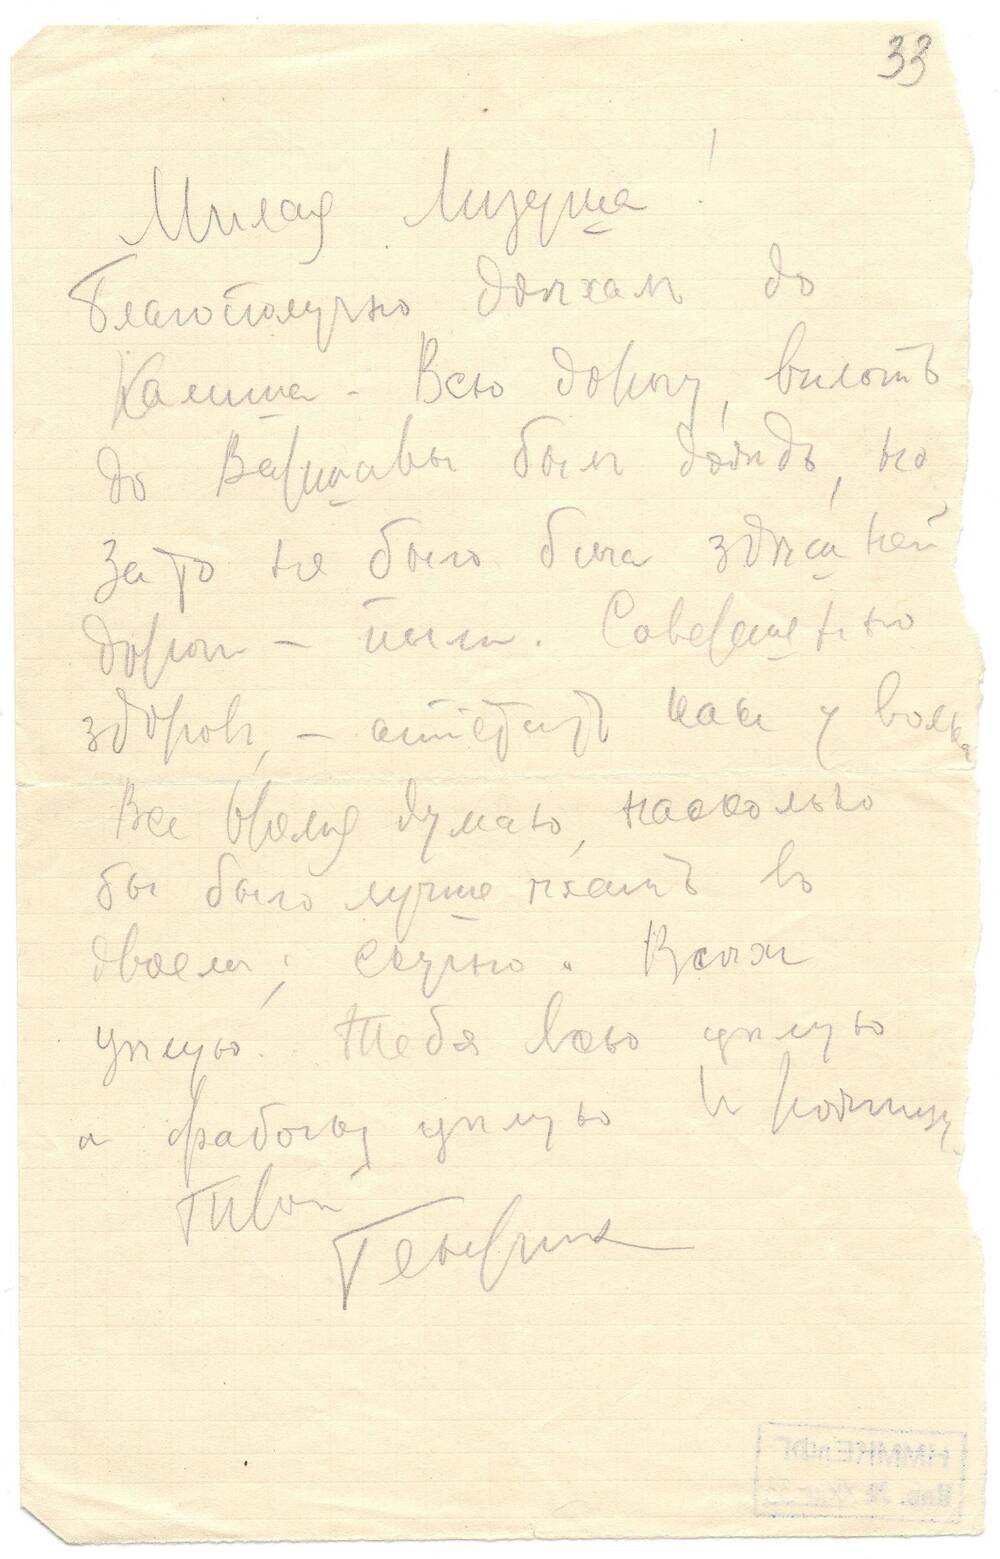 33
Милая Лизуша!
Благополучно доѣхалъ до
Калиша - Всю дорогу, вплоть
до Варшавы былъ дождь, но
зато не было бича здѣшней
дороги - пыли. Совершенно
здоровъ, - аппетитъ какъ у волка
Все время думаю, насколько
бы было лучше ѣхать во
двоем; скучно. Всѣхъ
цѣлую. Тебя всю цѣлую
и цѣлую и
Твой
Генрих